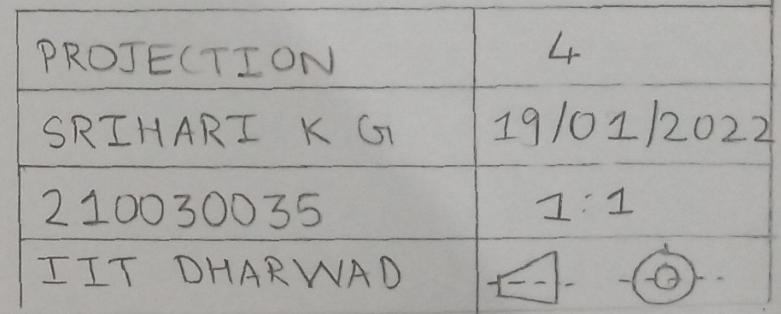 PROJECTION 4
SRIHARI K G 19/01/2022
210030035 1:1
IIT DHARWAD